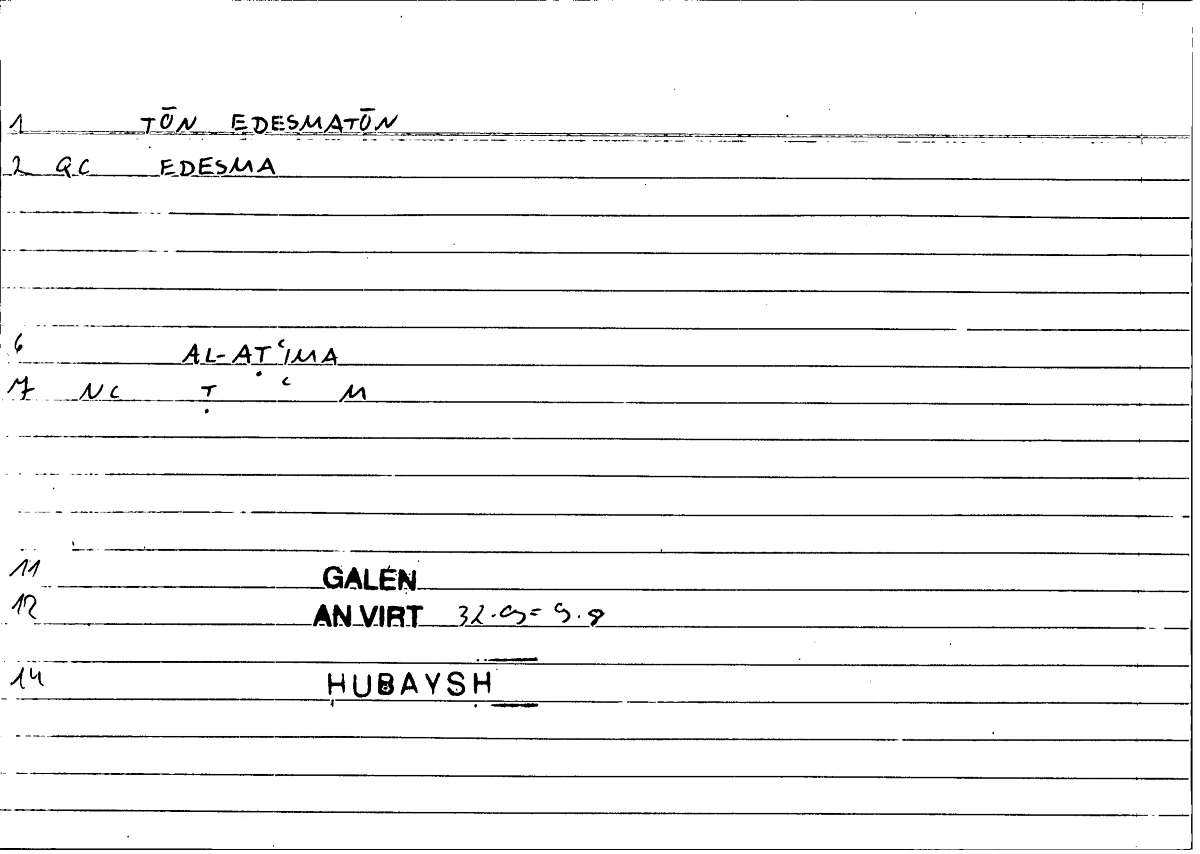 1 TŌN EDESMATŌN
2 QC EDESMA
6 AL-AṬʿIMA
7 NC Ṭ ʿ M
11 GALEN
12 AN VIRT 32.9= 9.8
14 HUBAYSH